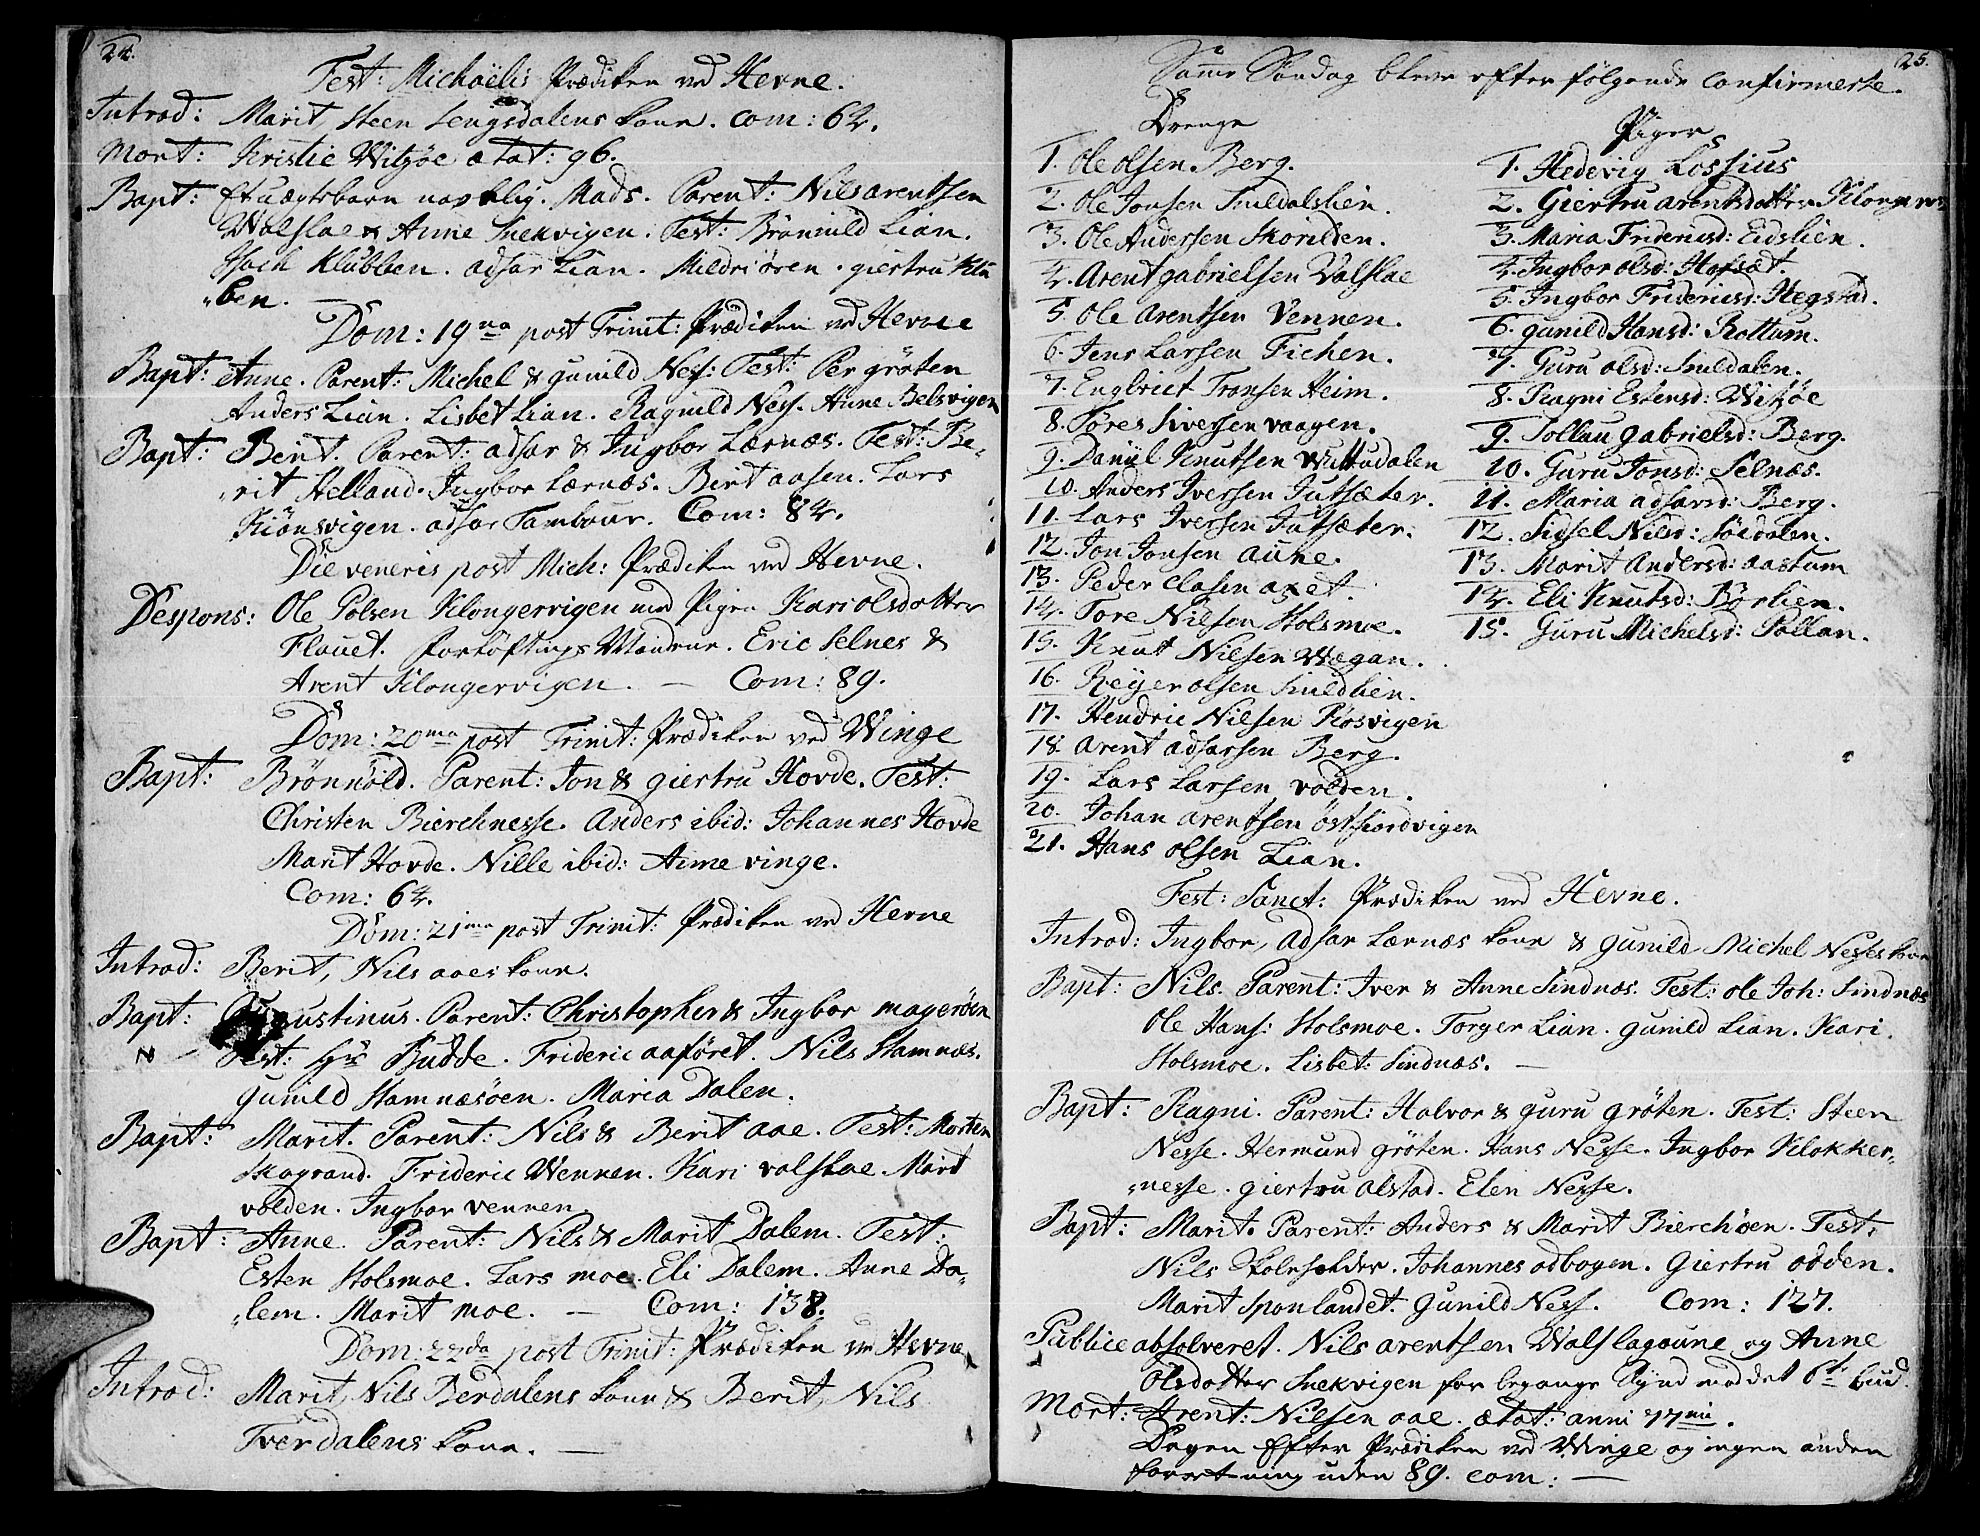 24.
Fest: Michaëlis Prædiken ved Hevne.
Introd: Marit, Steen Lengsdalens kone. Com: 64.
Mort: Kristie Witzöe ætat: 96.
Bapt: Et uægte barn navnlig. Mads. Parent: Nils arentsen
Walslae & Anne Snekvigen. Test: Brönnild Lian.
Isach Klubben. adsar Lian. Mildri ören. giertru Klu
„ben. —
Dom: 19na post Trinit: Prædiken ved Hevne
Bapt: Anne. Parent: Michel & gunild Ness: Test: Per gröten
Anders Lian. Lisbet Lian. Ragnild Ness. Anne Belsvigen
Bapt: Berit. Parent: adsar & Ingbor Lærnæs. Test: Be-
„rit Helland. Ingbor Lærnæs. Berit aasen. Lars
Kiönsvigen. adsar Tambour. Com: 84.
Die veneris post Mich: Prædiken ved Hevne.
Despons: Ole Polsen Klongervigen med Pigen Kari olsdatter
Flauet. Forlöftings Mændene. Eric Selnes &
Arent Klongervigen. — Com: 89.
Dom: 20ma post Trinit: Prædiken ved Winge
Bapt: Brönnild. Parent: Jon & giertru Hovde. Test:
Christen Bierchnesse. Anders ibid: Johannes Hovde
Marit Hovde. Nille ibid: Aime vinge.
Com: 64.
Dom: 21ma post Trinit: Prædiken ved Hevne
Introd: Berit, Nils aaes kone.
Bapt: Augustinus. Parent: Christopher & Ingbor mageröen
N Test: Hr Budde. Frideric aaföret. Nils Stamnæs.
Gunild Stamnæsöen. Maria Dalen.
Bapt: Marit. Parent: Nils & Berit aae. Test: Morten
Skogrand. Frideric Wennen. Kari valslae. Marit
volden. Ingbor vennen
Bapt: Anne. Parent: Nils & Marit Dalem. Test:
Esten Holsmoe. Lars moe. Eli Dalem. Anne Da„
„lem. Marit moe. — Com: 138.
Dom: 22da post Trinit: Prædiken ved Hevne
Introd: Marit, Nils Berdalens kone & Berit, Nils
Tverdalens kone. —
25.
Samme Söndag bleve efterfölgende confirmerte.
Drenge
1. Ole olsen Berg.
2. Ole Jonsen Snildalslien.
3. Ole Andersen Skorilden.
4. Arent gabrielsen Valslae
5. Ole Arentsen Vennen.
6. Jens Larsen Fichen.
7. Englrict Tronsen Heim.
8. Tores Siversen vaagen.
9. Daniel Knutsen Wuttudalen
10. Anders Iversen Jutsæter.
11. Lars Iversen Jutsæter.
12. Jon Jonsen aune.
13. Peder clasen axet.
14. Tore Nilsen Holsmoe.
15. Knut Nilsen Wægan.
16. Reyer olsen Snildlien.
17. Hendric Nilsen Rosvigen
18. Arent adsarsen Berg.
19. Lars Larsen volden.
20. Johan arentsen östfiordvigen
21. Hans olsen Lian.
Piger
1. Hedevig Lossius
2. Giertru arentsdatter Klonger
3. Maria Fridericsd: Eidslien.
4. Ingbor olsd: Hofsæt.
5. Ingbor Fridericsd: Hegstad.
6. gunild Hansd: Rottum.
7. Guru olsd: Snildalen.
8. Ragni Estensd: Witzöe
9. Tollau gabrielsd: Berg.
10. Guru Jonsd: Selnæs.
11. Maria adsarsd: Berg.
12. Sidsel Nilsd: Söedalen.
13. Marit Andersd: aastum
14. Eli Knutsd: Börlien.
15. Guru Michelsd: Pallan.
Fest: Sanct: Prædiken ved Hevne.
Introd: Ingbor, Adsar Lærnæs kone & gunild Michel Nesses kone
Bapt: Nils. Parent: Iver & Anne Sindnæs. Test: Ole Joh: Sindnæs
Ole Hans: Holsmoe. Torger Lian. gunild Lian. Kari
Holsmoe. Lisbet Sindnæs. —
Bapt: Ragni. Parent: Halvor & guru gröten. Test: Steen
Nesse. Hermund gröten. Hans Nesse. Ingbor Klokker„
„nesse. giertru alstad. Elen Nesse.
Bapt: Marit. Parent: Anders & Marit Bierchöen. Test:
Nils Skoleholder. Johannes odbogen. Giertru odden.
Marit Sponlandet. Gunild Ness. Com: 127.
Publice absolveret. Nils arentsen Walslagaune og Anne
Olsdatter Snekvigen for begangne Synd mod det 6te bud.
Mort: Arent: Nilsen aae. ætat: anni 77mi.
Dagen Efter Prædiken ved Winge og ingen anden
forretning uden 89. com: —